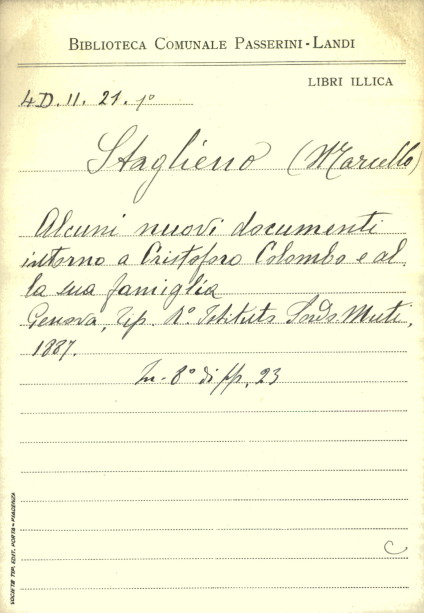 BIBLIOTECA COMUNALE PASSERINI-LANDI
LIBRI ILLICA
4D.II.21.1°
Staglieno (Marcello)
Alcuni nuovi documenti
intorno a Cristoforo Colombo e al
la sua famiglia
Genova, Tip. R°. Istituto Sordo-Muti,
1887.
In-8° di pp. 23
SOCIETÀ TIP. EDIT. PORTA-PIACENZA
C